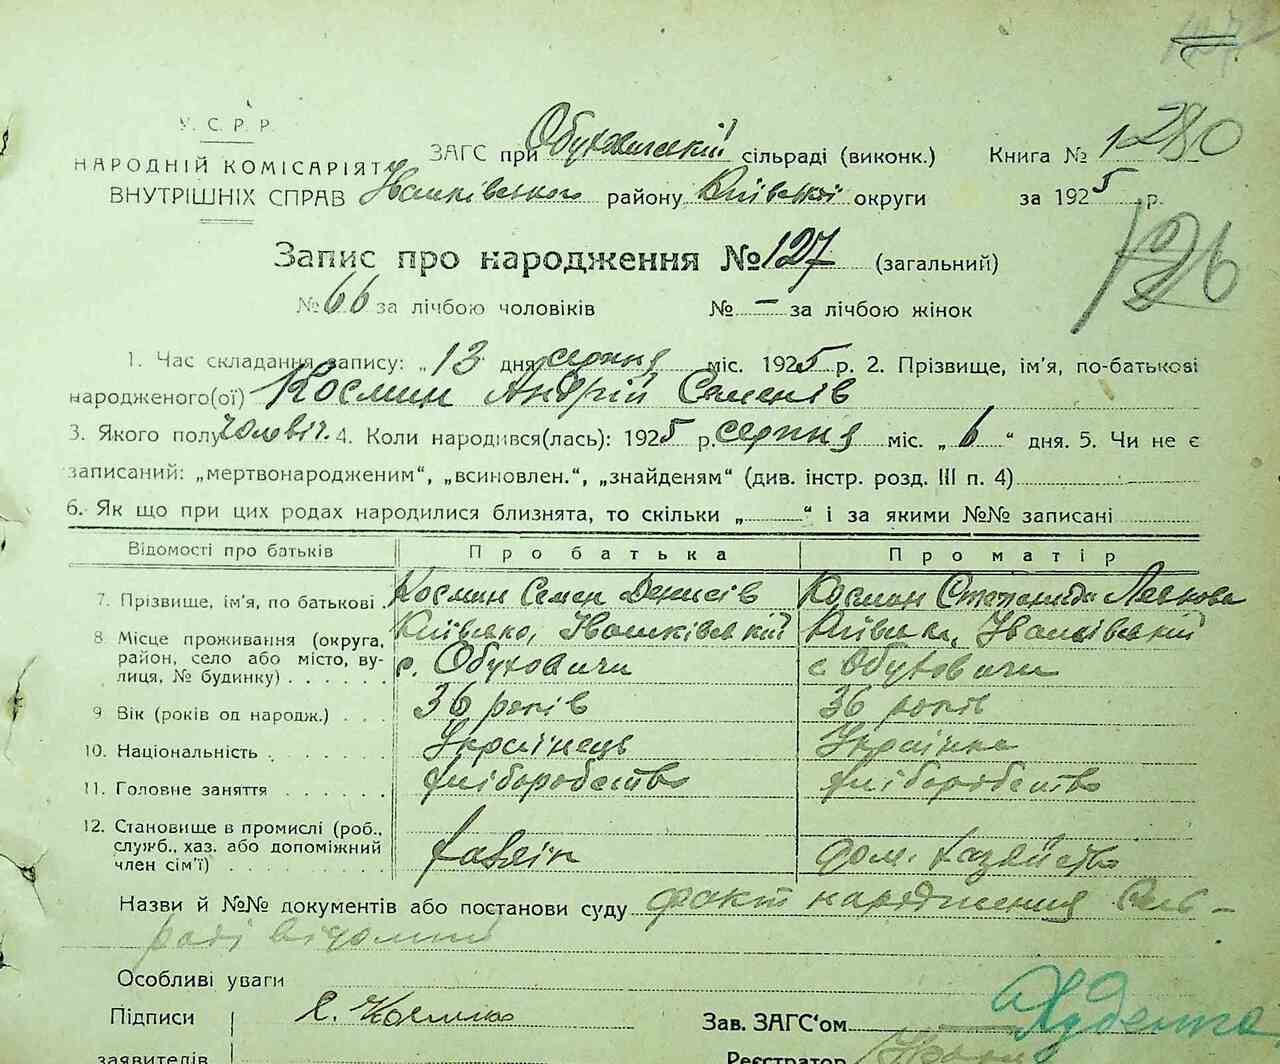 У. С. Р. Р.
НАРОДНІЙ КОМІСАРІЯТ
ВНУТРІШНІХ СПРАВ
ЗАГС при Обуховицькій сільраді (виконк.) Книга № 1 280
Іванківського району Київської округи за 1925 р.
126
Запис про народження № 127 (загальний)
№ 66 за лічбою чоловіків № — за лічбою жінок
1. Час складання запису: „13 дня серпня міс. 1925 р. 2. Прізвище, ім'я, по-батькові
народженого(ої) Космин Андрій Семенів
3. Якого полу чоловіч. 4. Коли народився(лась): 1925 р. серпня міс. „6" дня. 5. Чи не є
записаний: „мертвонародженим", „всиновлен.", „знайденям" (див. інстр. розд. III п. 4)
6. Як що при цих родах народилися близнята, то скільки „ " і за якими №№ записані
Відомості про батьків Про батька Про матір
7. Прізвище, ім'я, по батькові Космин Семен Денисів Космин Степанида
8 Місце проживання (округа, Київсько, Іванківський Київська, Іванківський
район, село або місто, ву- с. Обуховичи с Обуховичи
лиця, № будинку)
9 Вік (років од народж.) 36 років 36 років
10. Національність Українець Українка
11. Головне заняття хліборобство хліборобство
12. Становище в промислі (роб.,
служб., хаз. або допоміжний хазяїн дом. хазяйство
член сім'ї)
Назви й №№ документів або постанови суду факт народження Сель-
раді відомий
Особливі уваги
Підписи С. Космин Зав. ЗАГС'ом
заявителів Реєстратор